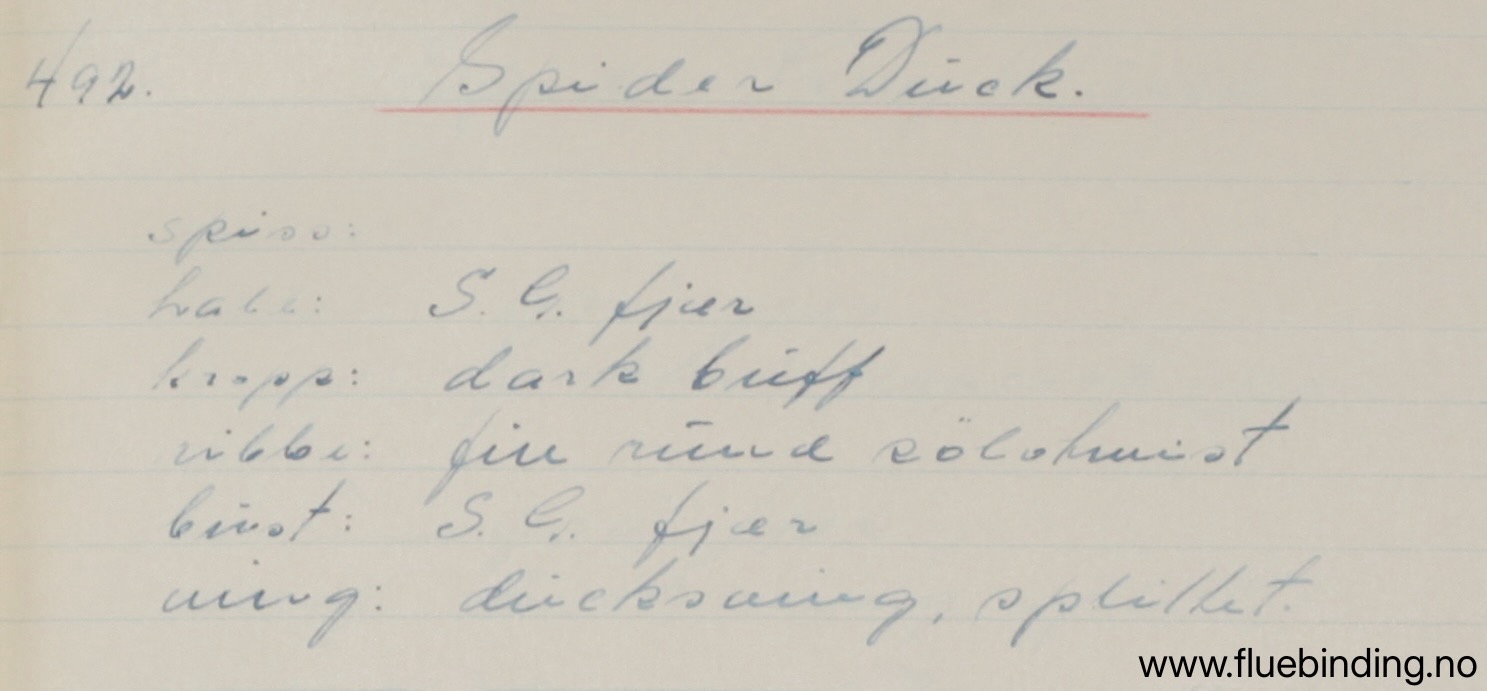 492. Spider Duck.
spiss:
hale: S. G. fjær
kropp: dark buff
ribbe: fin rund sölvtwist
bust: S. G. fjær
wing: duckswing, splittet.
www.fluebinding.no